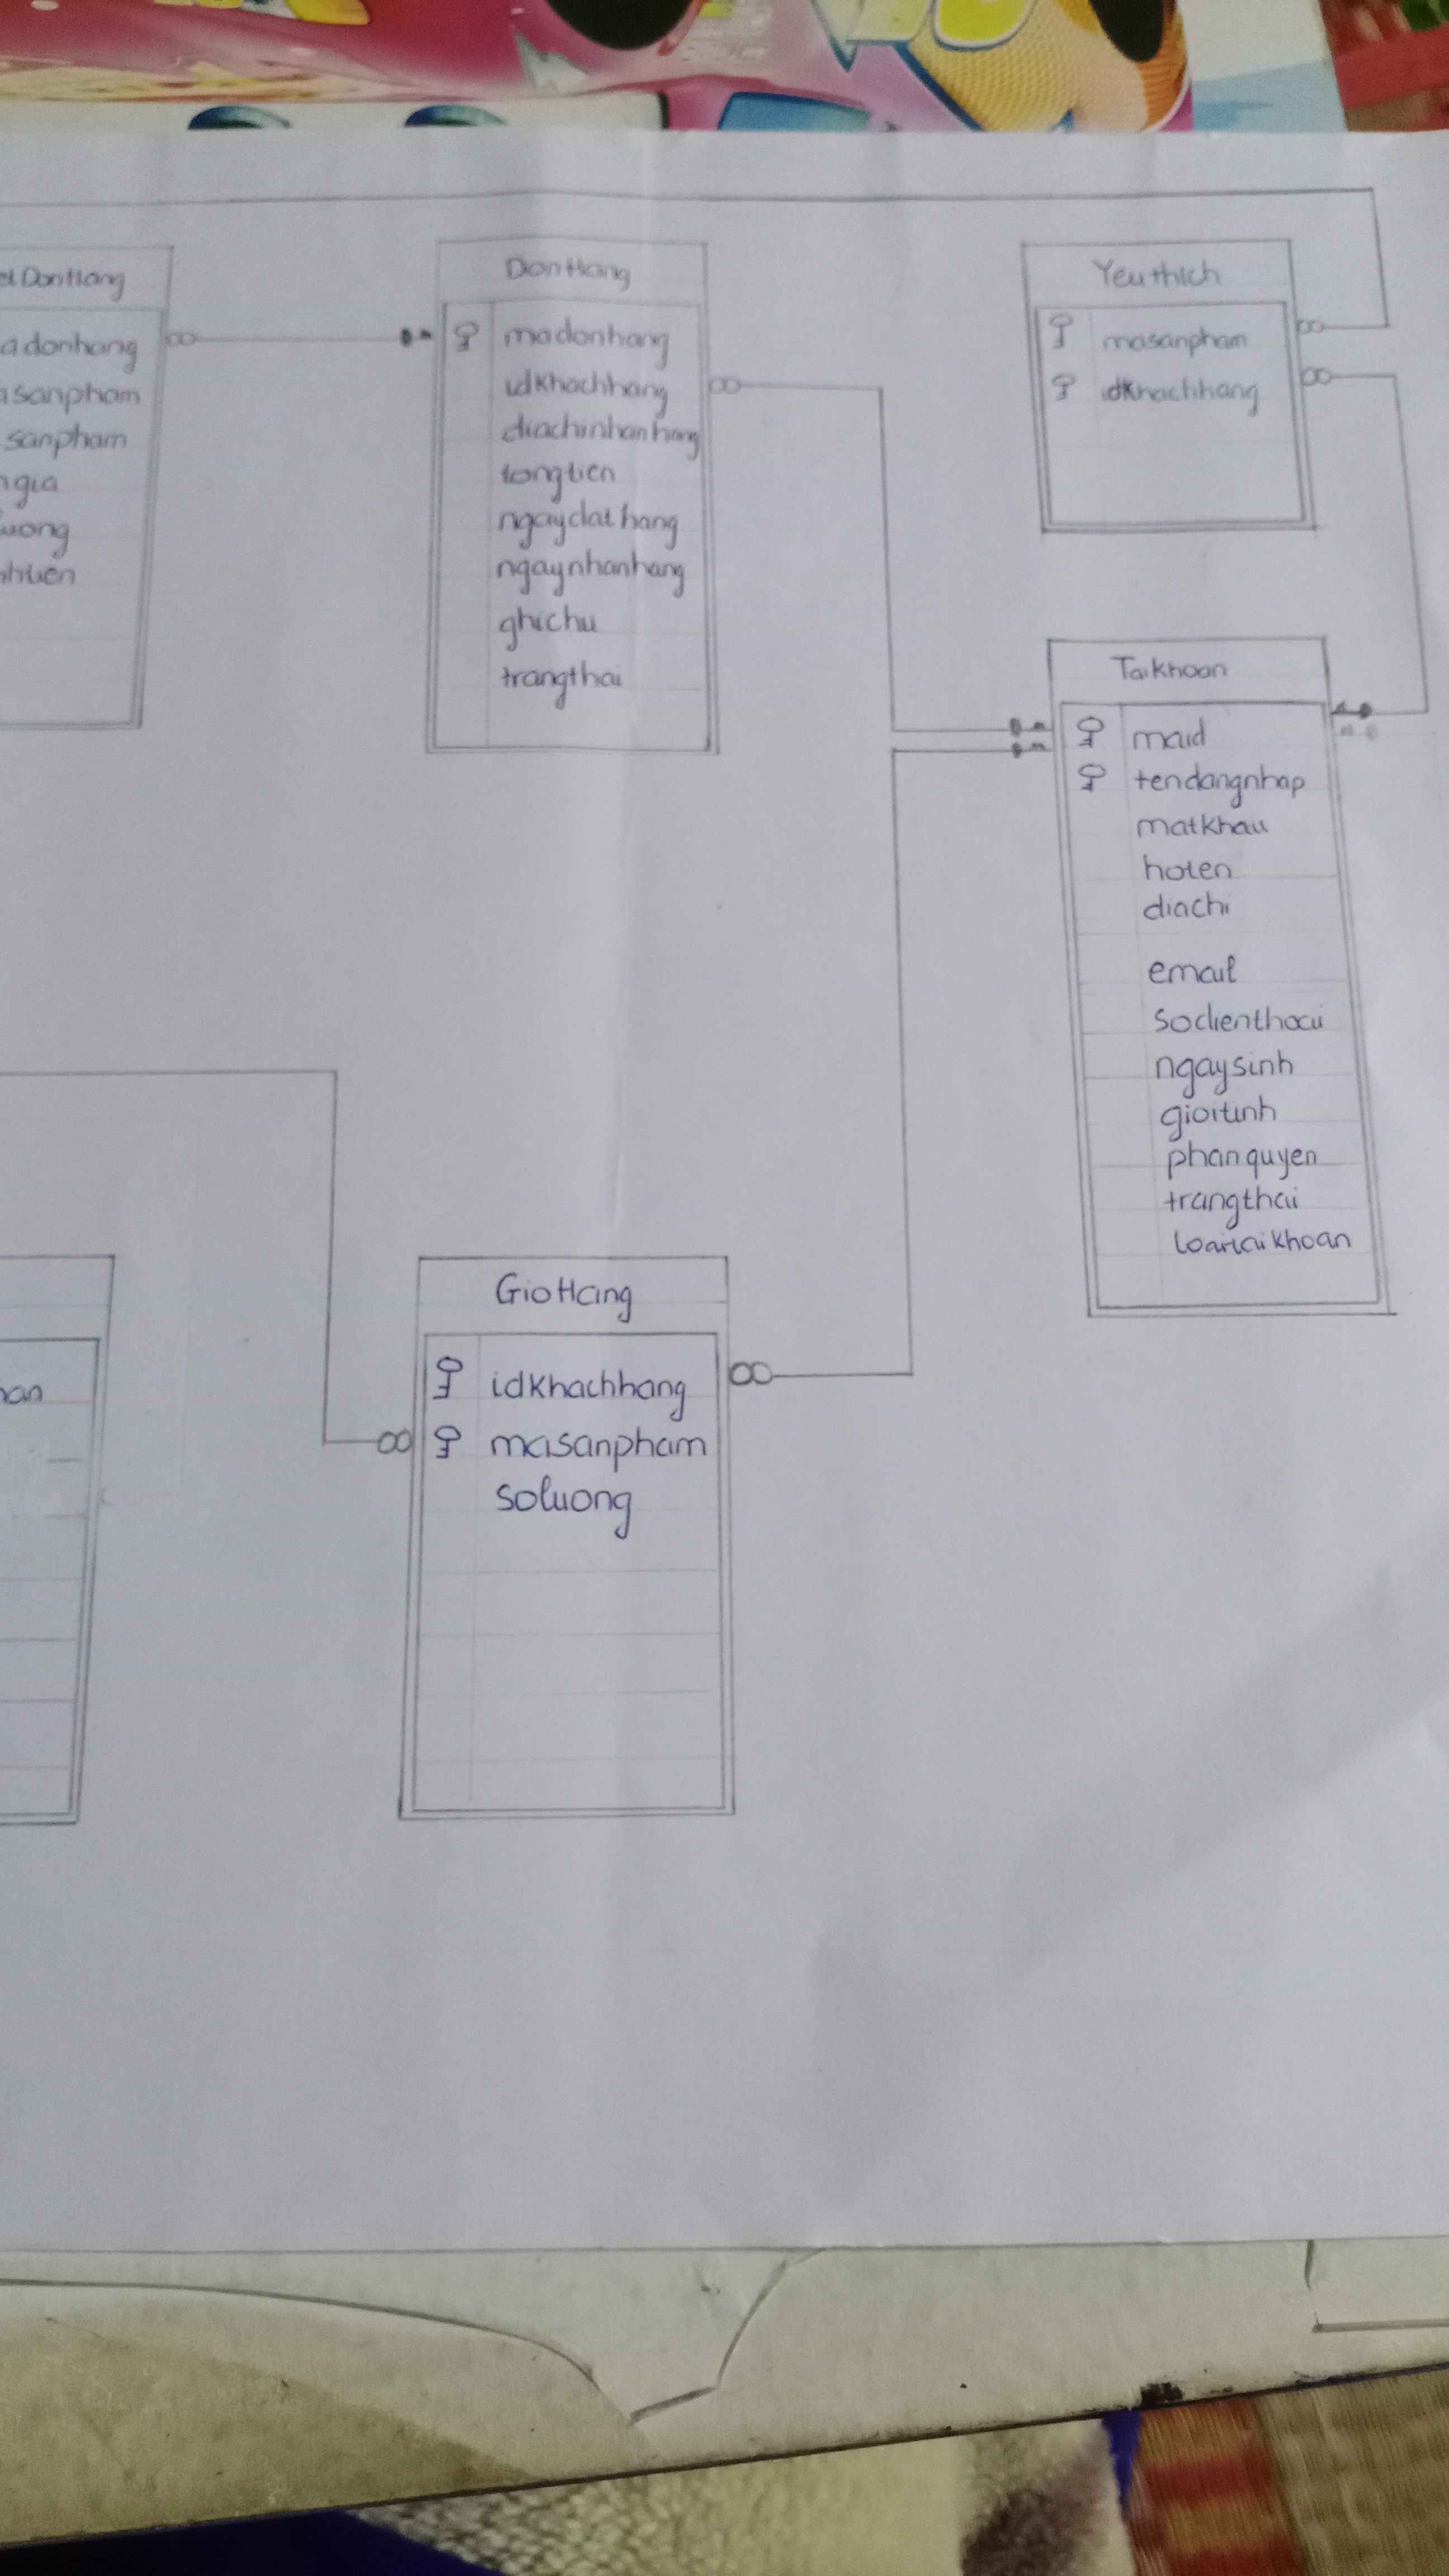 DonHang
adonhang
madonhang
asanpham
idkhachhang
sanpham
diachinhanhang
gia
tongtien
uong
ngaydathang
ngaynhanhang
ghichu
trangthai
Yeuthich
masanpham
idkhachhang
Taikhoan
maid
tendangnhap
matkhau
hoten
diachi
email
sodienthoai
ngaysinh
gioitinh
phanquyen
trangthai
loaitaikhoan
GioHang
idkhachhang
masanpham
soluong